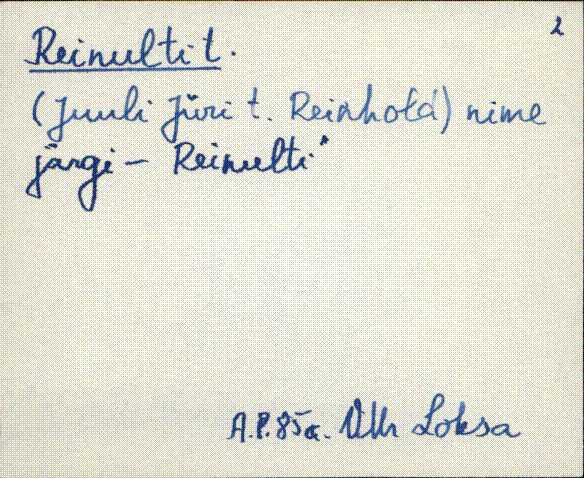 2
Reinulti t.
(Juuli Jüri t. Reinhold) nime
järgi – Reinulti
A.P. 85a. Loksa